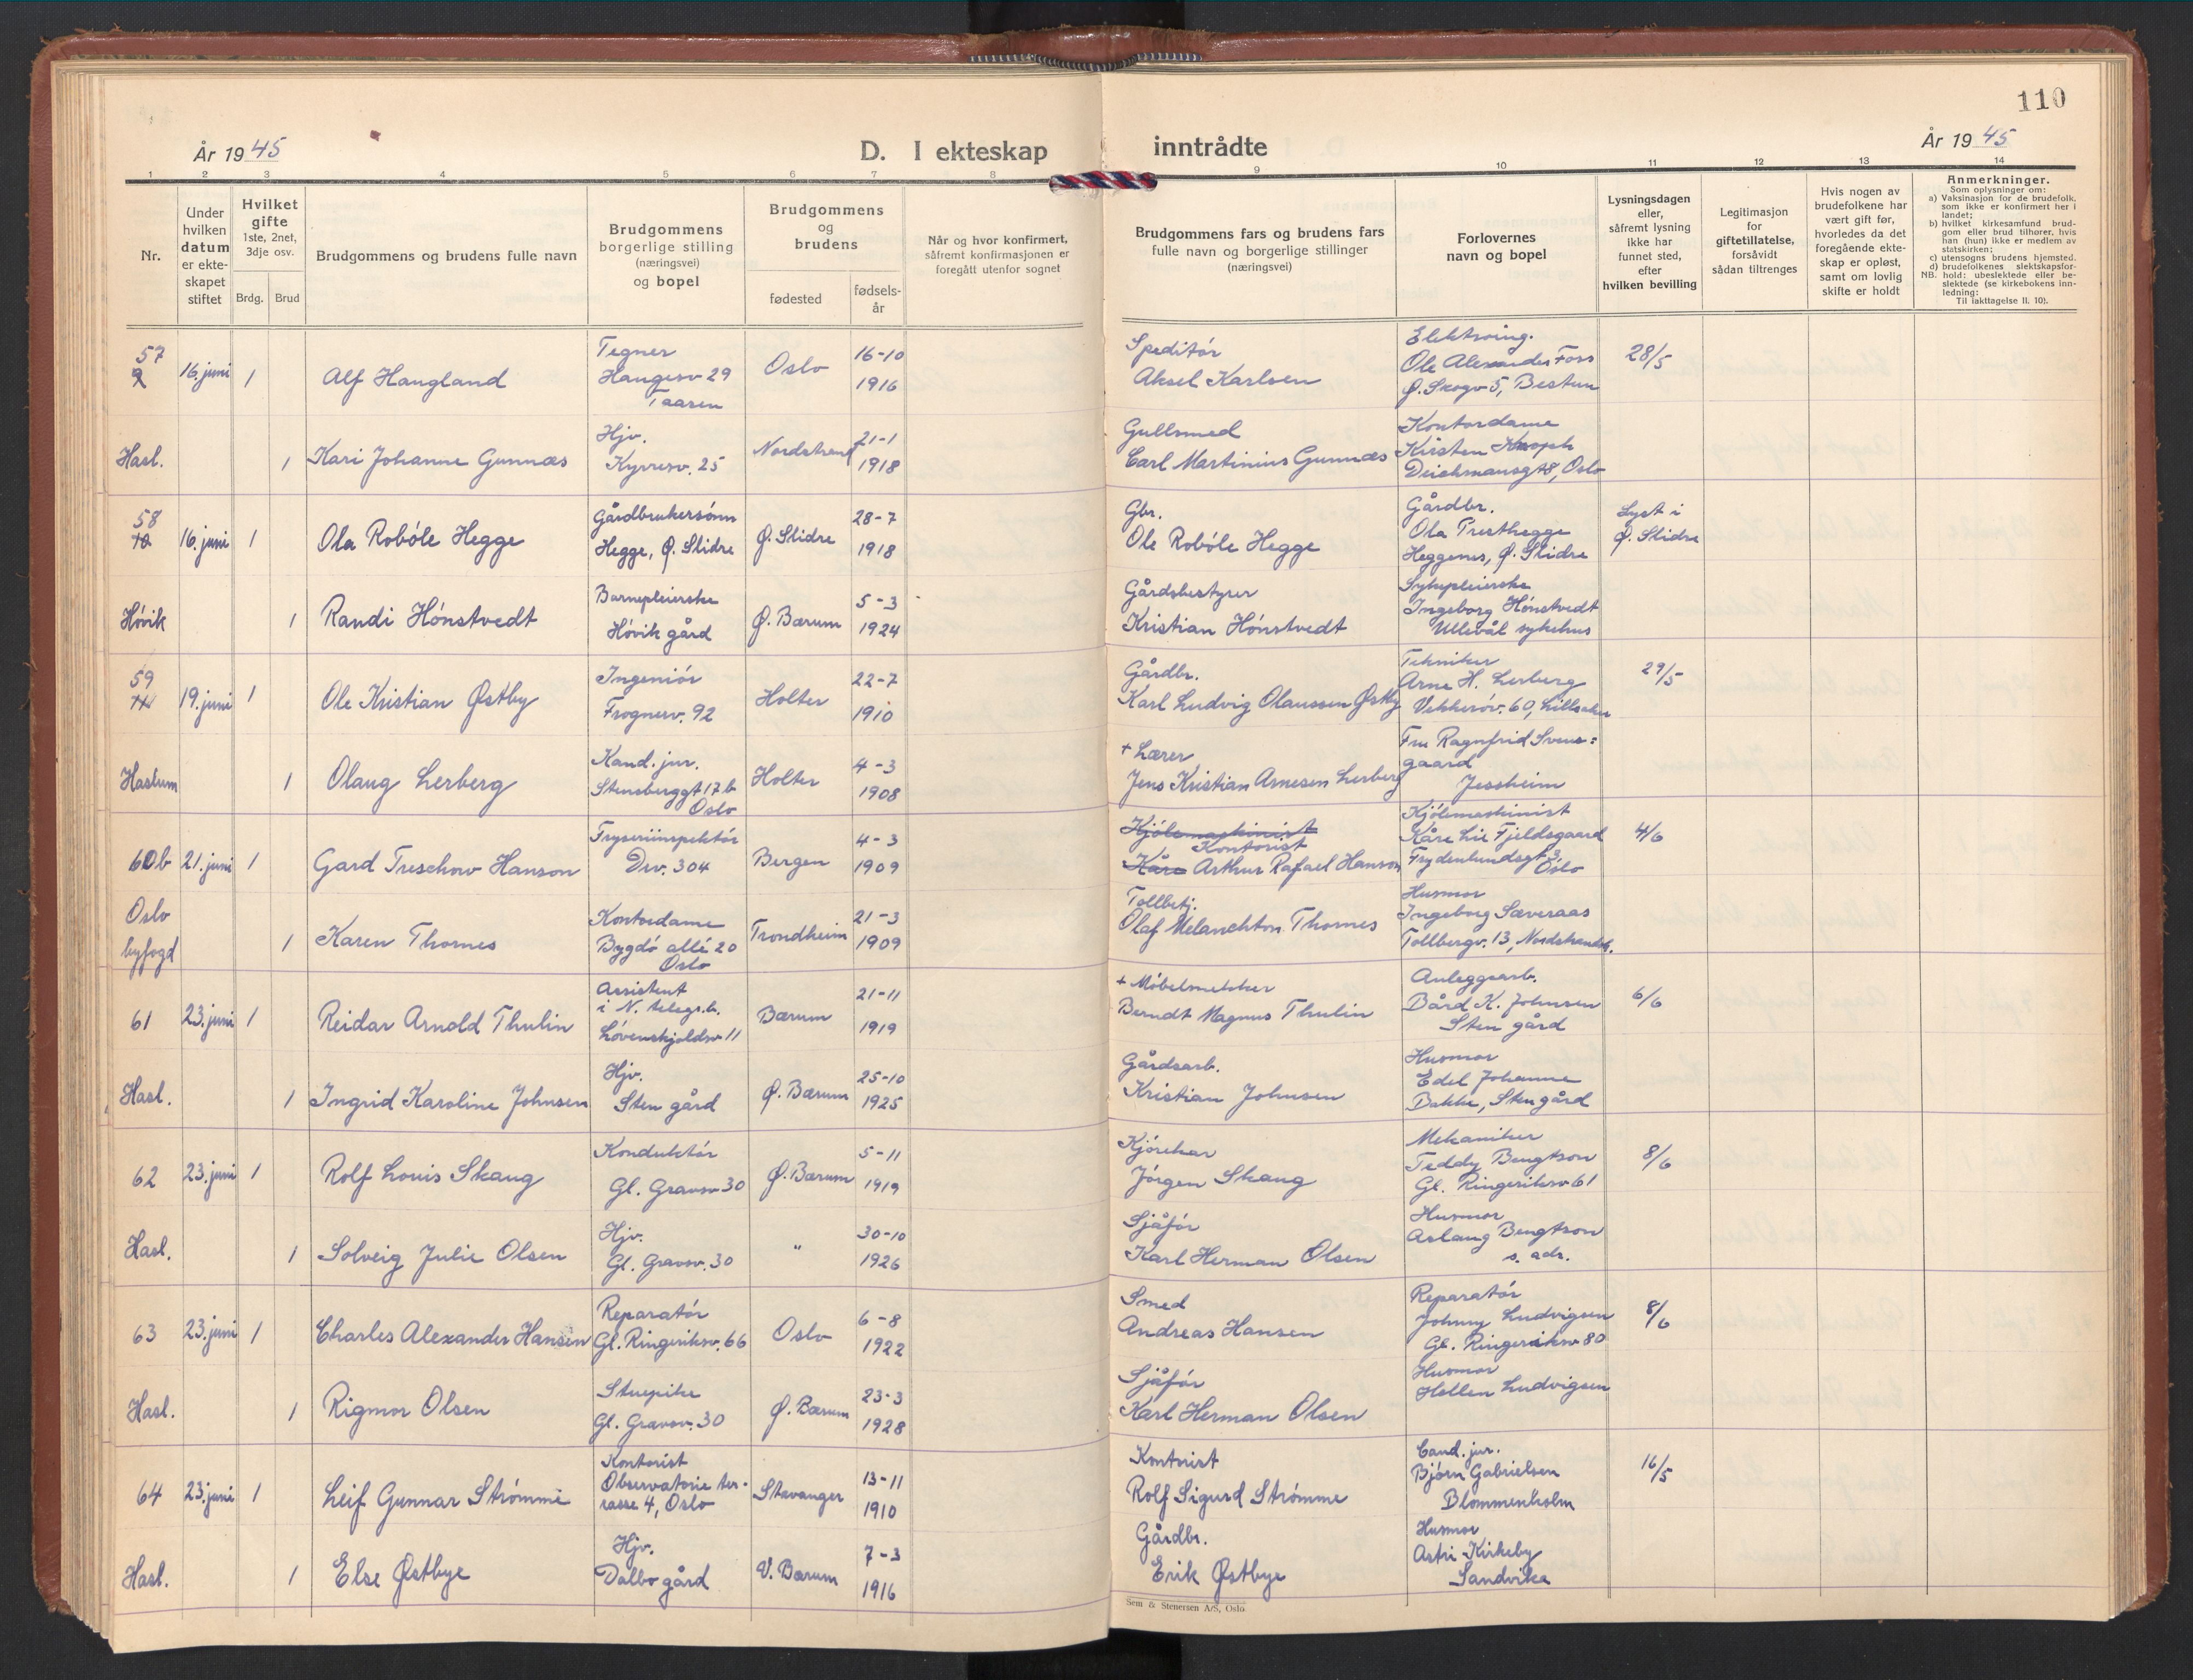 110
År 1945
D. I ekteskap inntrådte
År 1945
1 2 3 4 5 6 7 8 9 10 11 12 13 14
Nr.
Under hvilken datum er ekteskapet stiftet
Hvilket gifte
1ste, 2net, 3dje osv.
Brdg. Brud
Brudgommens og brudens fulle navn
Brudgommens borgerlige stilling (næringsvei) og bopel
Brudgommens og brudens
fødested
fødselsår
Når og hvor konfirmert, såfremt konfirmasjonen er foregått utenfor sognet
Brudgommens fars og brudens fars fulle navn og borgerlige stillinger (næringsvei)
Forlovernes navn og bopel
Lysningsdagen eller, såfremt lysning ikke har funnet sted, efter hvilken bevilling
Legitimasjon for giftetillatelse, forsåvidt sådan tiltrenges
Hvis nogen av brudefolkene har vært gift før, hvorledes da det foregående ekteskap er opløst, samt om lovlig skifte er holdt
Anmerkninger.
Som oplysninger om:
a) Vaksinasjon for de brudefolk, som ikke er konfirmert her i landet;
b) hvilket kirkesamfund brudgom eller brud tilhører, hvis han (hun) ikke er medlem av statskirken;
c) utensogns brudens hjemsted.
d) brudefolkenes slektskapsforhold: ubeslektede eller beslektede (se kirkebokens innledning:
NB. Til iakttagelse II. 10).
57
9 16. juni 1 Alf Haugland
Tegner
Haugesv 29
Oslo
16-10
1916
Speditör
Aksel Karlsen
Elektroing.
Ole Alexander Foss
Ø. Skogv 5, Bestun
28/5
Hasl. 1 Kari Johanne Gunnæs
Hjv.
Kyrresv. 25
Nordstrand
21-1
1918
Gullsmed
Carl Martinius Gunnæs
Kontordame
Kirsten Knoph
Deichmansgt 8, Oslo
58
10 16. juni 1 Ola Robóle Hegge
Gårdbrukersónn
Hegge, Ø. Slidre
Ø. Slidre
28-7
1918
Gbr.
Ole Robóle Hegge
Gårdbr.
Ola Presthegge
Heggenes, Ø. Slidre
Lyst i
Ø. Slidre
Hóvik 1 Randi Hónstvedt
Barnepleierske
Hóvik gård
Ø. Bærum
5-3
1924
Gårdsbestyrer
Kristian Hónstvedt
Sykepleierske
Ingeborg Hónstvedt
Ullevål sykehus
59
11 19. juni 1 Ole Kristian Østby
Ingeniór
Frognerv. 92
Holter
22-7
1910
Gårdbr.
Karl Ludvig Olaussen Østby
Tekniker
Arne H. Lerberg
Vekkeróv. 60, Lilleaker
29/5
Haslum 1 Olaug Lerberg
Kand. jur.
Stensberggt 17 b
Oslo
Holter
4-3
1908
+ Lærer
Jens Kristian Arnesen Lerberg
Fru Ragnfrid Svens=
gaard
Jessheim
60b 21. juni 1 Gard Treschow Hanson
Fryseriinspektór
Drv. 304
Bergen
4-3
1909
Kjólemaskinist
Kontorist
Kåre Arthur Rafael Hanson
Kjólemaskinist
Kåre Lie Fjeldsgaard
Frydenlundsgt 3
Oslo
4/6
Oslo
byfogd 1 Karen Thornes
Kontordame
Bygdó allé 20
Oslo
Trondheim
21-3
1909
Tollbetj.
Olaf Melanchton Thornes
Husmor
Ingeborg Sæveraas
Tollbergv. 13, Nordstrandsh.
61 23. juni 1 Reidar Arnold Thulin
Assistent
i N. telegr.b.
Lóvenskjoldsv 11
Bærum
21-11
1919
+ Móbelsnekker
Berndt Magnus Thulin
Anleggsarb.
Bård K. Johnsen
Sten gård
6/6
Hasl. 1 Ingrid Karoline Johnsen
Hjv.
Sten gård
Ø. Bærum
25-10
1925
Gårdsarb.
Kristian Johnsen
Husmor
Edel Johanne
Bakke, Sten gård
62 23. juni 1 Rolf Louis Skaug
Konduktór
Gl. Gravsv 30
Ø. Bærum
5-11
1919
Kjórekar
Jórgen Skaug
Mekaniker
Teddy Bengtson
Gl. Ringeriksv 61
8/6
Hasl. 1 Solveig Julie Olsen
Hjv.
Gl. Gravsv. 30
"
30-10
1926
Sjåfór
Karl Herman Olsen
Husmor
Aslaug Bengtson
s. adr.
63 23. juni 1 Charles Alexander Hansen
Reparatór
Gl. Ringeriksv. 66
Oslo
6-8
1922
Smed
Andreas Hansen
Reparatór
Johnny Ludvigsen
Gl. Ringeriksv 80
8/6
Hasl. 1 Rigmor Olsen
Stuepike
Gl. Gravsv. 30
Ø. Bærum
23-3
1928
Sjåfór
Karl Herman Olsen
Husmor
Hellen Ludvigsen
64 23. juni 1 Leif Gunnar Strómme
Kontorist
Observatorie ter-
rasse 4, Oslo
Stavanger
13-11
1910
Kontorist
Rolf Sigurd Strómme
Cand. jur.
Bjórn Gabrielsen
Blommenholm
16/5
Hasl. 1 Else Østbye
Hjv.
Dalbo gård
V. Bærum
7-3
1916
Gårdbr.
Erik Østbye
Husmor
Astri Kirkeby
Sandvika
Sem & Stenersen A/S, Oslo.